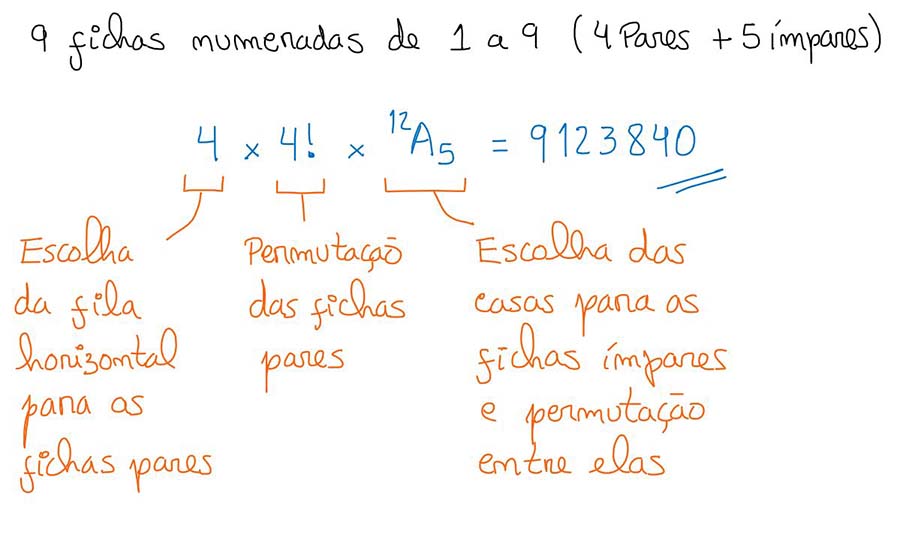 9 fichas numeradas de 1 a 9 (4 Pares + 5 ímpares)
4 × 4! × ¹²A₅ = 9123840
Escolha
da fila
horizontal
para as
fichas pares
Permutação
das fichas
pares
Escolha das
casas para as
fichas ímpares
e permutação
entre elas